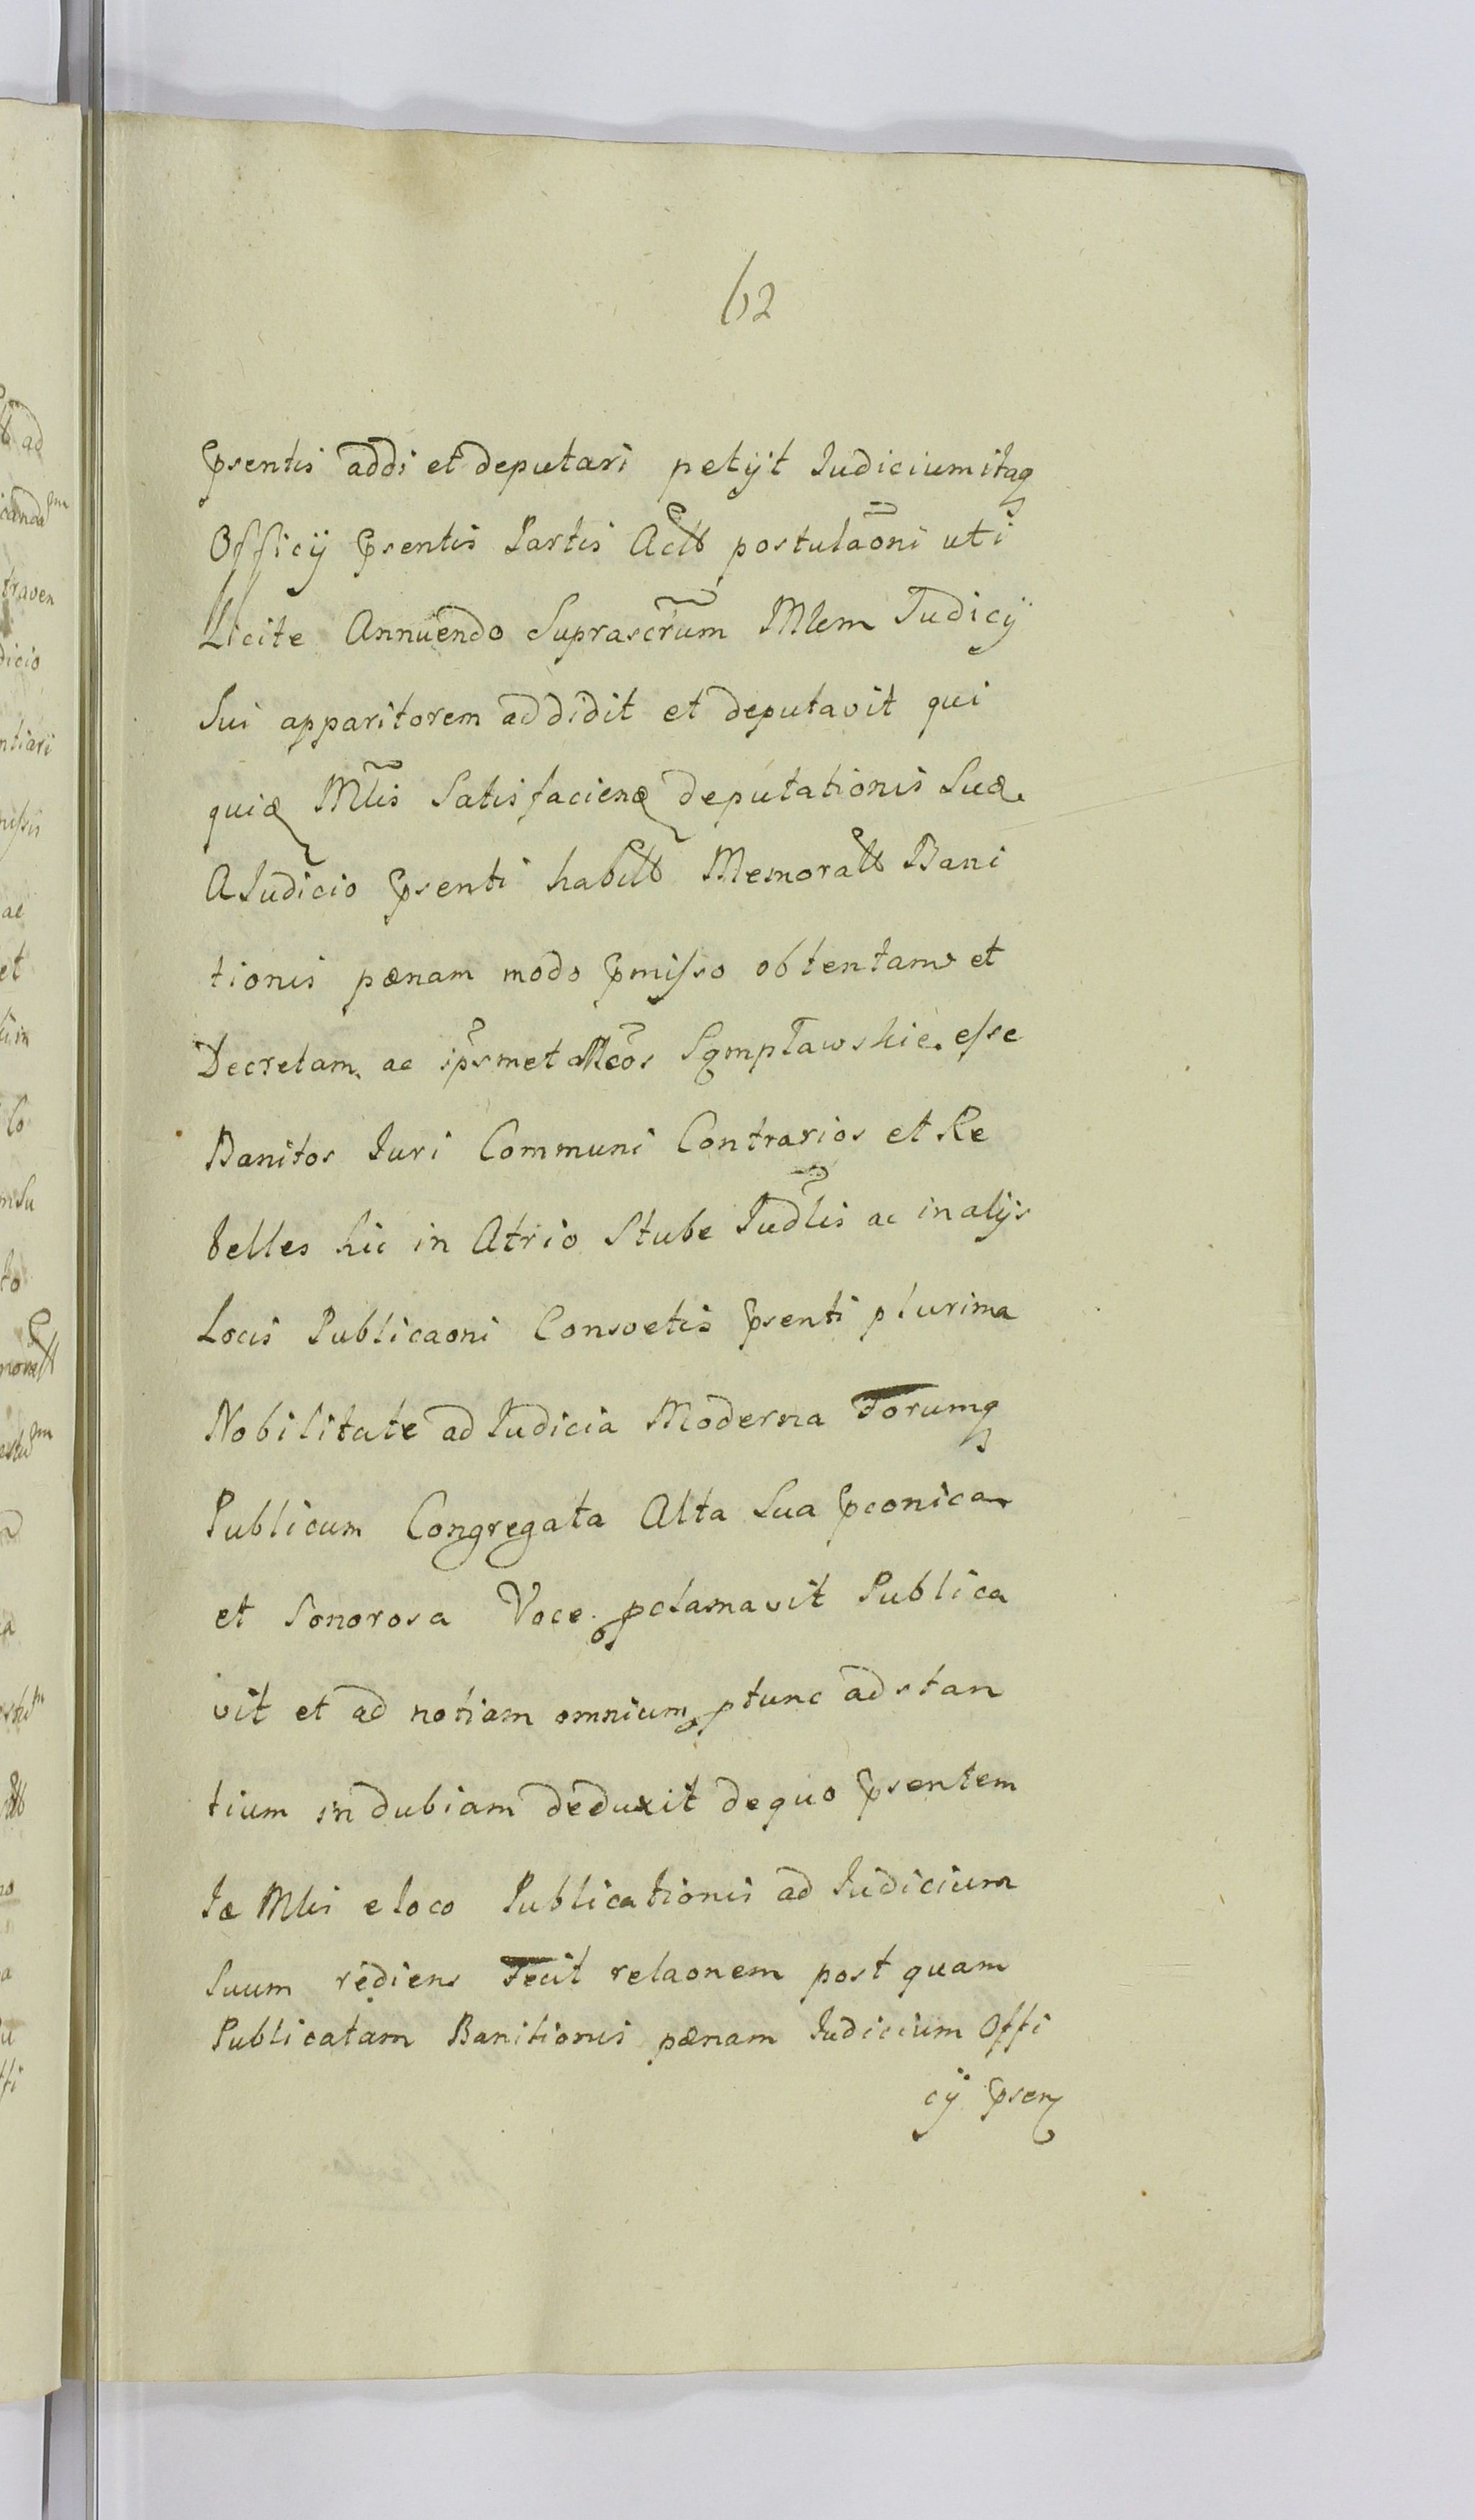 62
Psentis addi et deputari petijt Iudicium itaq
Officij Psentis Partis Act postulaoni uti
Llicite Annuendo Suprascrum Mlem Iudicij
Sui apparitorem addidit et deputavit qui
quiq Mlis Satisfacienq deputationis Suæ
A Iudicio Psenti habitt Memoratt Bani
tionis pænam modo Pmisso obtentam et
Decretam ac ipsmet Mcos Sgmptawskie esse
Banitos Iuri Communi Contrarios et Re
belles hic in Atrio Stube Iudlis ac in alijs
Locis Publicaoni Consvetis Psenti plurima
Nobilitate ad Iudicia Moderna Forumq
Publicum Congregata Alta Sua Pconica
et Sonorosa Voce pclamavit Publica
vit et ad notiam omnium ptunc adstan
tium in dubiam deduxit de quo Psentem
Iæ Mlis e loco Publicationis ad Iudicium
Suum rediens Fecit relaonem post quam
Publicatam Banitionis pænam Iudicium Offi
cij Psen